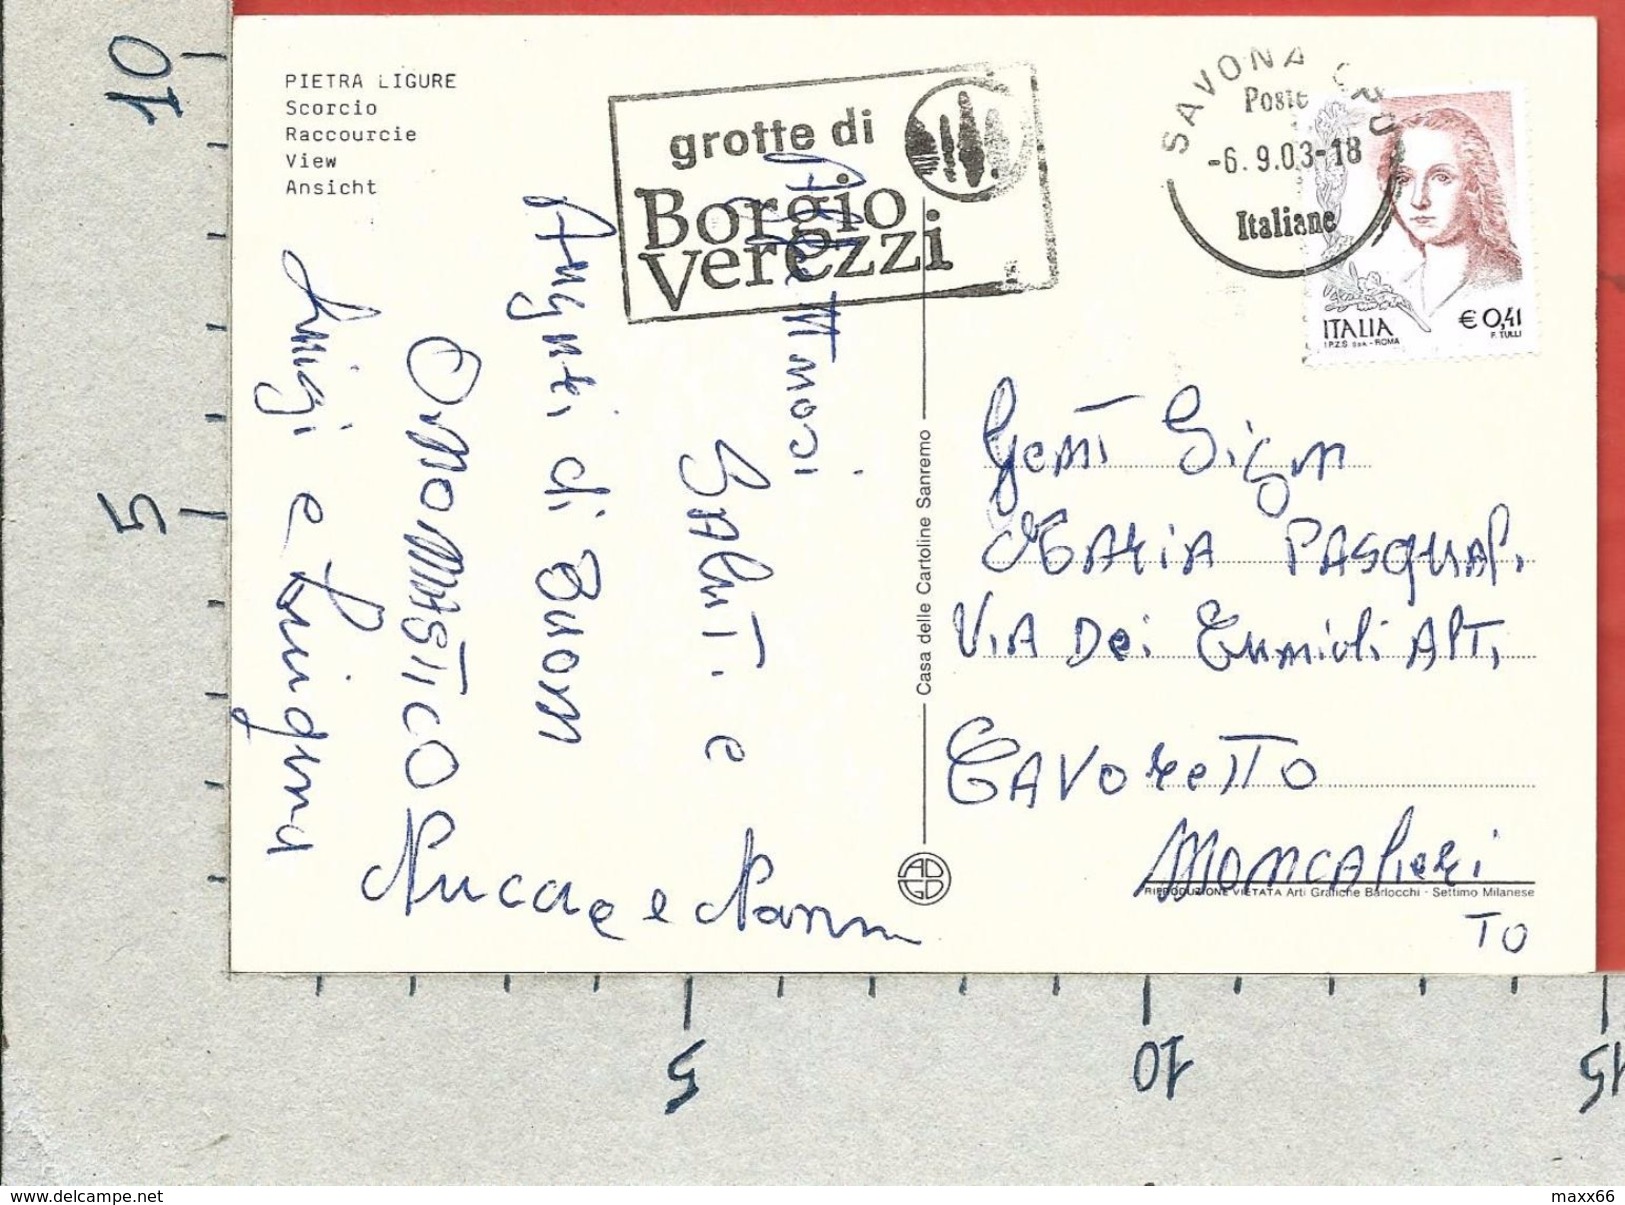 10
5
5
10
15
PIETRA LIGURE
Scorcio
Raccourcie
View
Ansicht
grotte di
Borgio
Verezzi
SAVONA CPO
Poste
-6. 9.03-18
Italiane
ITALIA
I.P.Z.S. S.p.A. - ROMA
€0,41
F. TULLI
Affettuosi
SAluTi e
Auguri di Buon
OnoMASTICO
Luigi e Luigina
e Nanni
Casa delle Cartoline Sanremo
Gent Sign
PASQUAL.
VIA Dei Cunioli AlT.
CAVOReTTO
MONCAlieRi
TO
RIPRODUZIONE VIETATA Arti Grafiche Barlocchi - Settimo Milanese
www.delcampe.net
maxx66